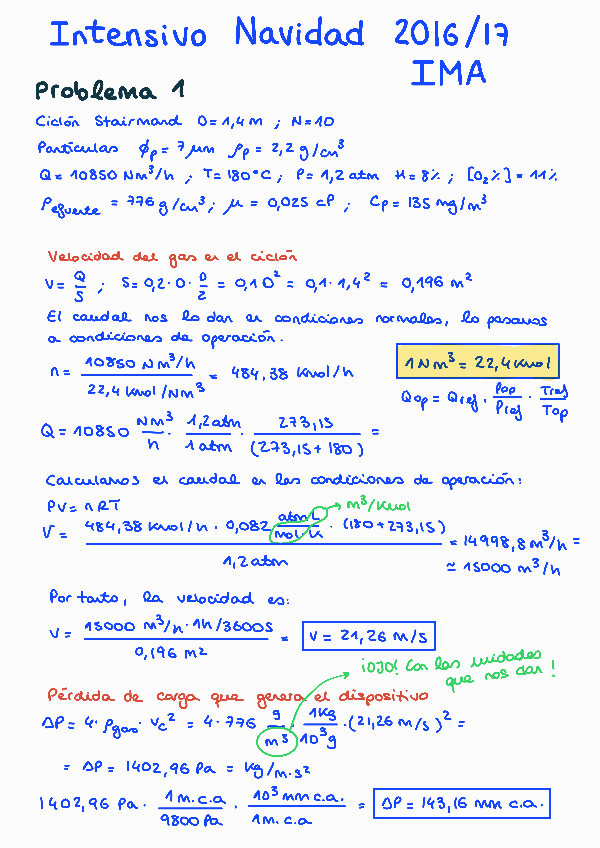 Intensivo Navidad 2016/17
IMA
Problema 1
Ciclón Stairmand D = 1,4 m ; N = 10
Partículas ϕp = 7 µm ρp = 2,2 g/cm³
Q = 10850 Nm³/h ; T = 180°C ; P = 1,2 atm H = 8% ; [O₂%] = 11%
ρefluente = 776 g/cm³ ; µ = 0,025 cP ; Cp = 135 mg/m³
Velocidad del gas en el ciclón
V = Q/S ; S = 0,2·D·D/2 = 0,1D² = 0,1·1,4² = 0,196 m²
El caudal nos lo dan en condiciones normales, lo pasamos
a condiciones de operación.
n = 10850 Nm³/h / 22,4 Kmol/Nm³ = 484,38 Kmol/h
1 Nm³ = 22,4 Kmol
Qop = Qref · Pop/Pref · Tref/Top
Q = 10850 Nm³/h · 1,2 atm/1 atm · 273,15/(273,15+180) =
Calculamos el caudal en las condiciones de operación:
PV = nRT
V = 484,38 Kmol/h · 0,082 atm·L/mol·K · (180+273,15) / 1,2 atm = 14998,8 m³/h =
m³/Kmol
≃ 15000 m³/h
Por tanto, la velocidad es:
V = 15000 m³/h · 1h/3600s / 0,196 m² = V = 21,26 m/s
¡OJO! Con las unidades
que nos dan!
Pérdida de carga que genera el dispositivo
ΔP = 4·ρgas·Vc² = 4·776 g/m³ · 1Kg/10³g · (21,26 m/s)² =
= ΔP = 1402,96 Pa = Kg/m·s²
1402,96 Pa · 1 m.c.a/9800 Pa · 10³ mm c.a./1 m.c.a. = ΔP = 143,16 mm c.a.